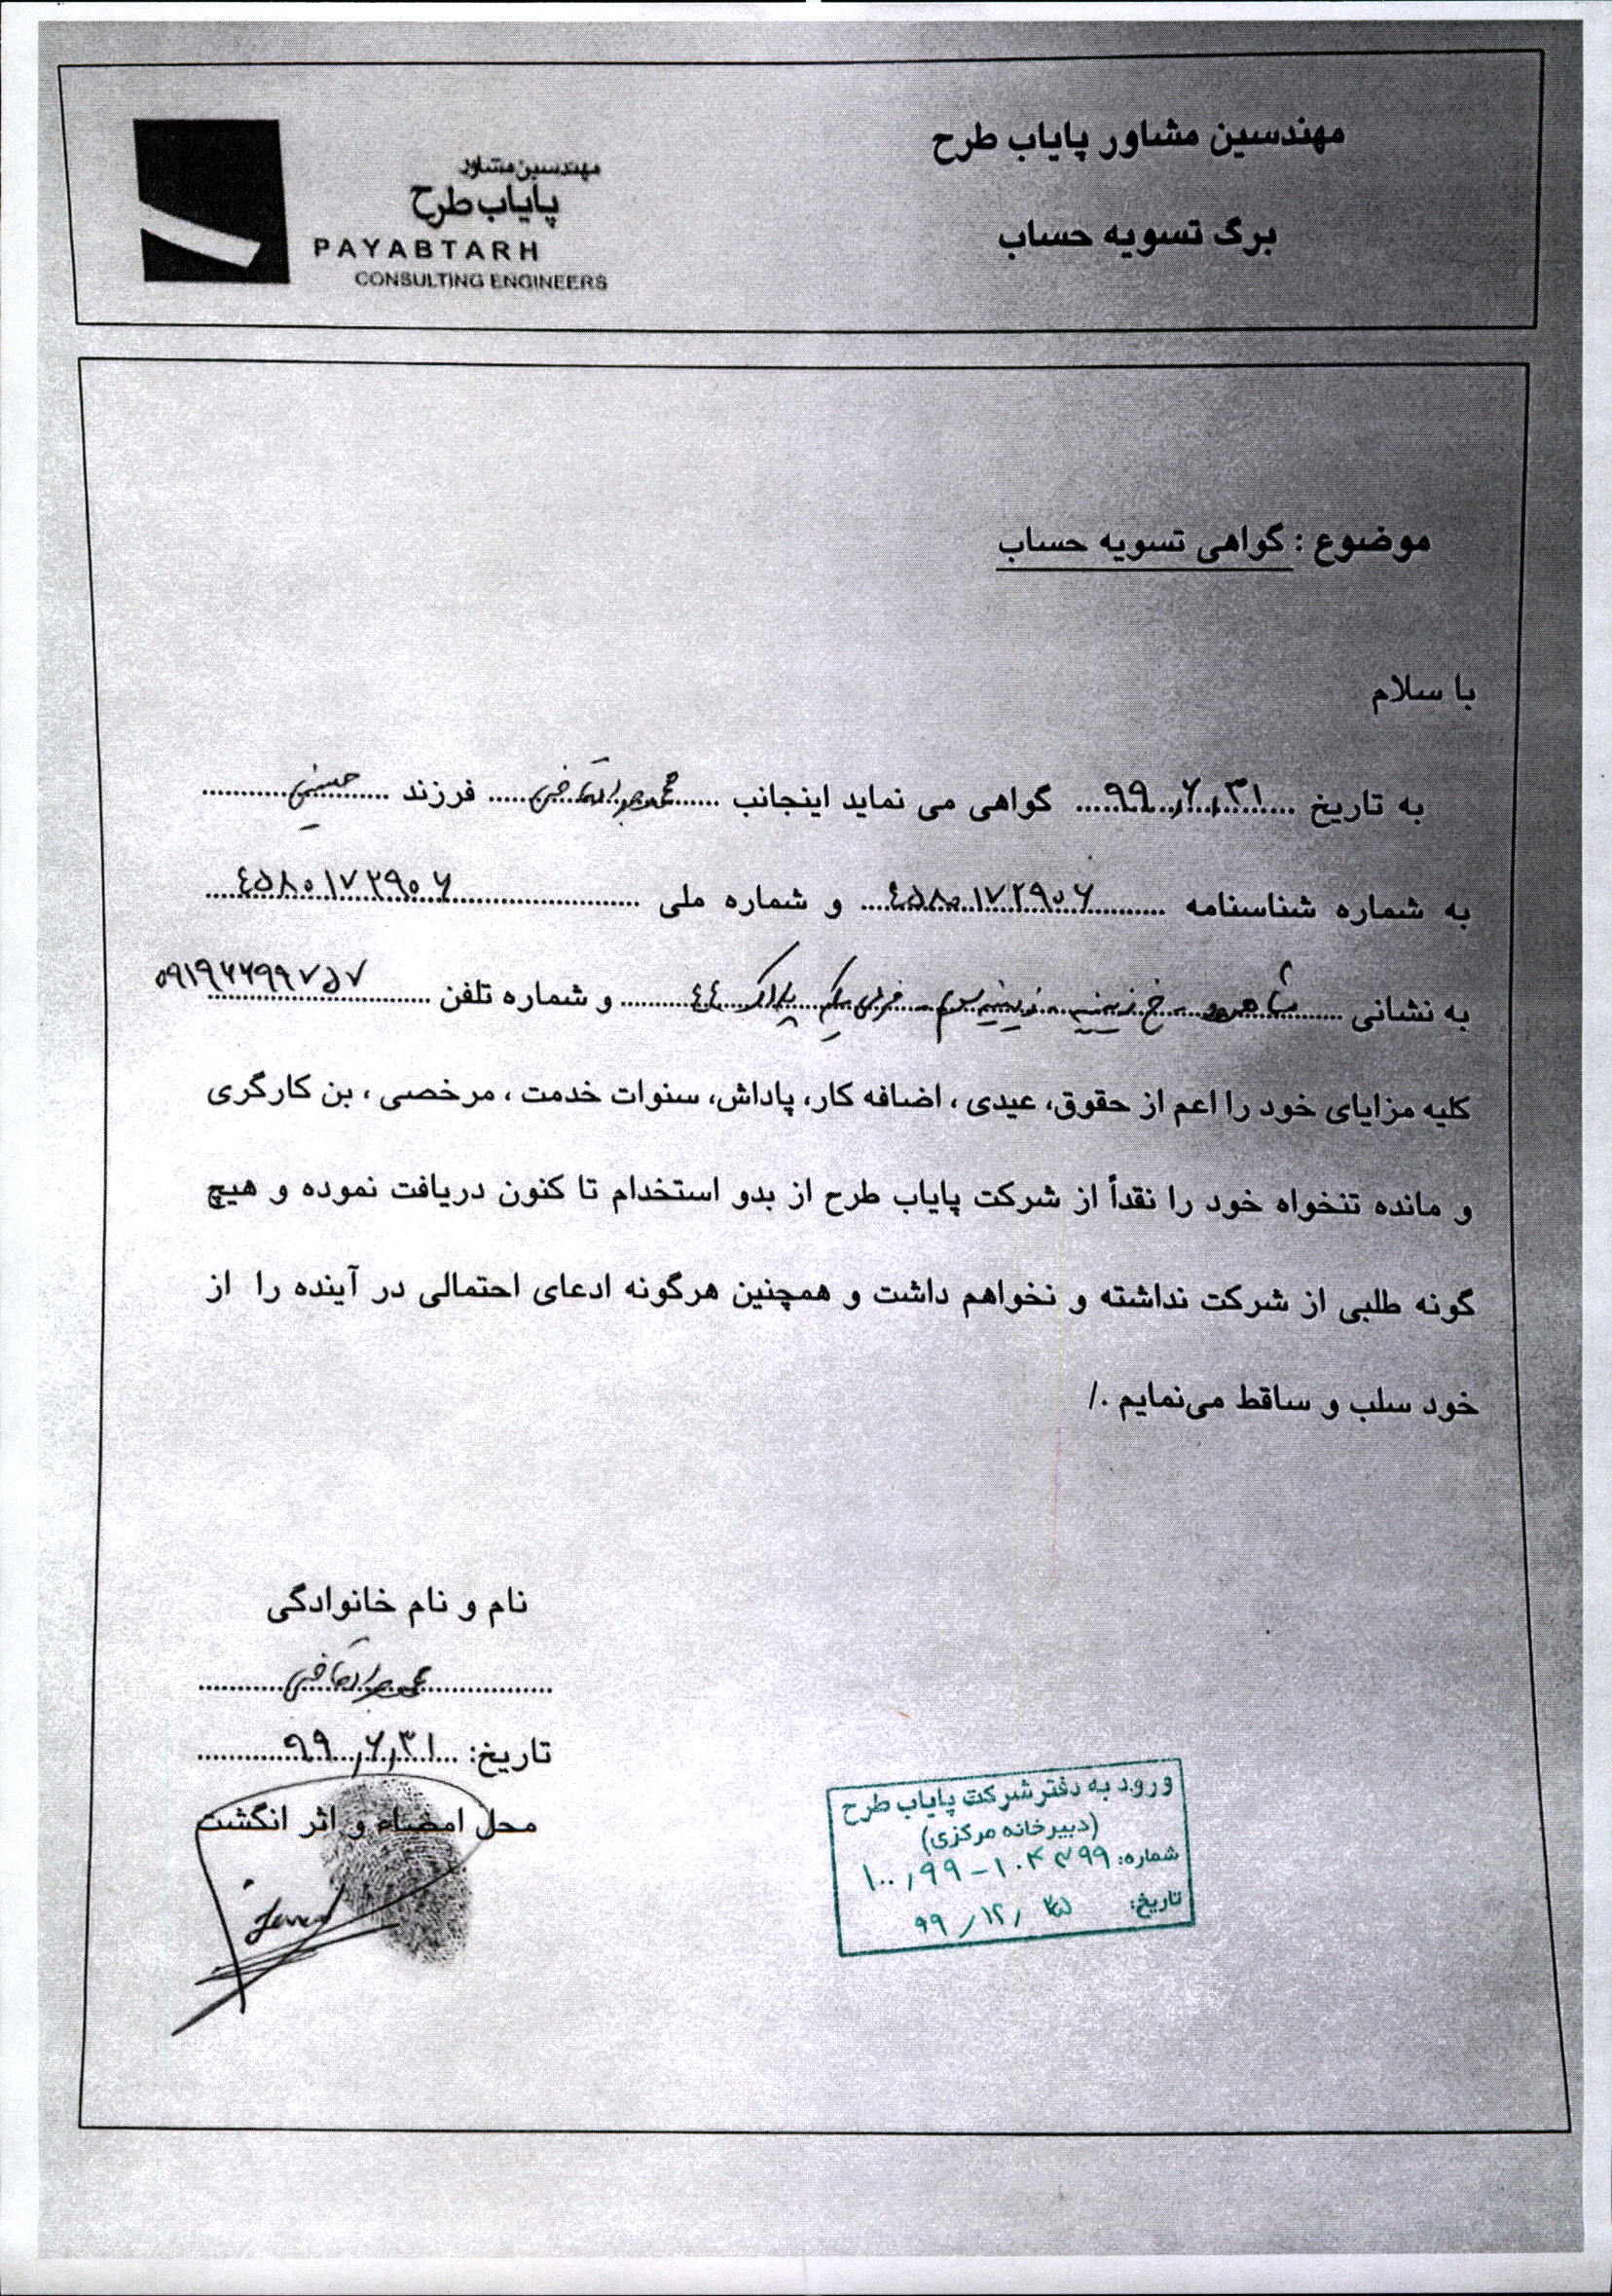 مهندسین مشاور پایاب طرح
برگ تسویه حساب
مهندسین مشاور
پایاب طرح
PAYABTARH
CONSULTING ENGINEERS
موضوع : گواهی تسویه حساب
با سلام
به تاریخ ۹۹,۶,۳۱ گواهی می نماید اینجانب فرزند
به شماره شناسنامه ۴۵۸۰۱۷۲۹۰۶ و شماره ملی ۴۵۸۰۱۷۲۹۰۶
به نشانی شاهرود - خ زینبیه - فرعی یکم پلاک ۴۴ و شماره تلفن ۰۹۱۹۶۶۹۹۷۵۷
کلیه مزایای خود را اعم از حقوق، عیدی ، اضافه کار، پاداش، سنوات خدمت ، مرخصی ، بن کارگری
و مانده تنخواه خود را نقداً از شرکت پایاب طرح از بدو استخدام تا کنون دریافت نموده و هیچ
گونه طلبی از شرکت نداشته و نخواهم داشت و همچنین هرگونه ادعای احتمالی در آینده را از
خود سلب و ساقط می‌نمایم ./
نام و نام خانوادگی
تاریخ: ۹۹,۶,۳۱
محل امضاء و اثر انگشت
ورود به دفتر شرکت پایاب طرح
(دبیرخانه مرکزی)
شماره:
تاریخ: ۹۹,۱۲,